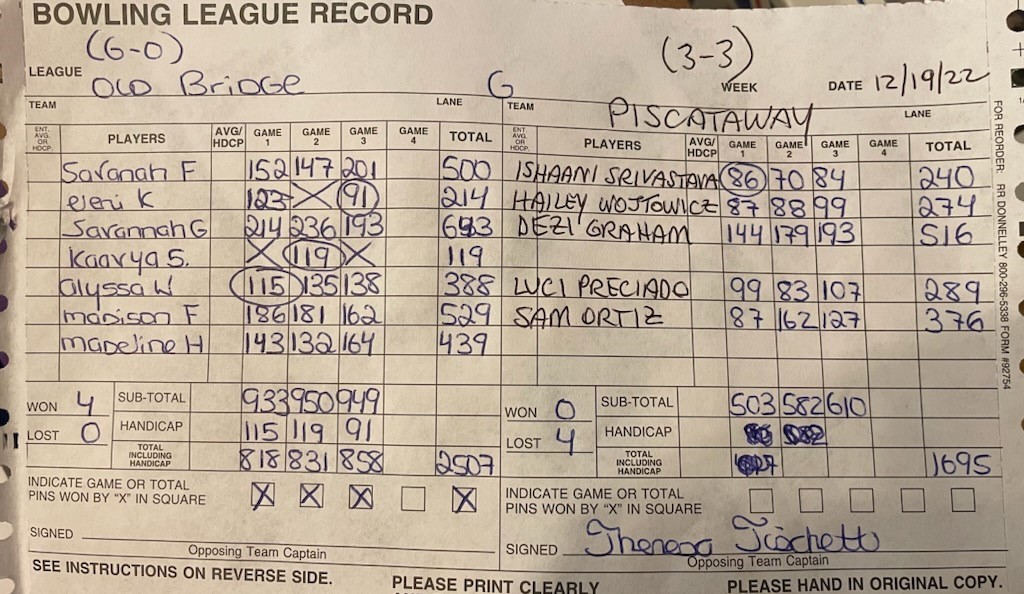 BOWLING LEAGUE RECORD
(6-0) (3-3)
LEAGUE OLD BRIDGE G WEEK DATE 12/19/22
TEAM LANE TEAM PISCATAWAY LANE
ENT. AVG. OR HDCP. PLAYERS AVG/ HDCP GAME 1 GAME 2 GAME 3 GAME 4 TOTAL ENT. AVG. OR HDCP. PLAYERS AVG/ HDCP GAME 1 GAME 2 GAME 3 GAME 4 TOTAL
Savanah F 152 147 201 500 ISHAANI SRIVASTAVA 86 70 84 240
eleni K 123 X 91 214 HAILEY WOJTOWICZ 87 88 99 274
Savannah G 214 236 193 643 DEZI GRAHAM 144 179 193 516
Kaavya S. X 119 X 119
alyssa W 115 135 138 388 LUCI PRECIADO 99 83 107 289
madison F 186 181 162 529 SAM ORTIZ 87 162 127 376
madeline H 143 132 164 439
WON 4 SUB-TOTAL 933 950 949 WON 0 SUB-TOTAL 503 582 610
LOST 0 HANDICAP 115 119 91 LOST 4 HANDICAP
TOTAL INCLUDING HANDICAP 818 831 858 2507 TOTAL INCLUDING HANDICAP 1695
INDICATE GAME OR TOTAL PINS WON BY "X" IN SQUARE X X X X INDICATE GAME OR TOTAL PINS WON BY "X" IN SQUARE
SIGNED SIGNED Theresa
Opposing Team Captain Opposing Team Captain
SEE INSTRUCTIONS ON REVERSE SIDE. PLEASE PRINT CLEARLY PLEASE HAND IN ORIGINAL COPY.
FOR REORDER: RR DONNELLEY 800-296-5338 FORM #92754